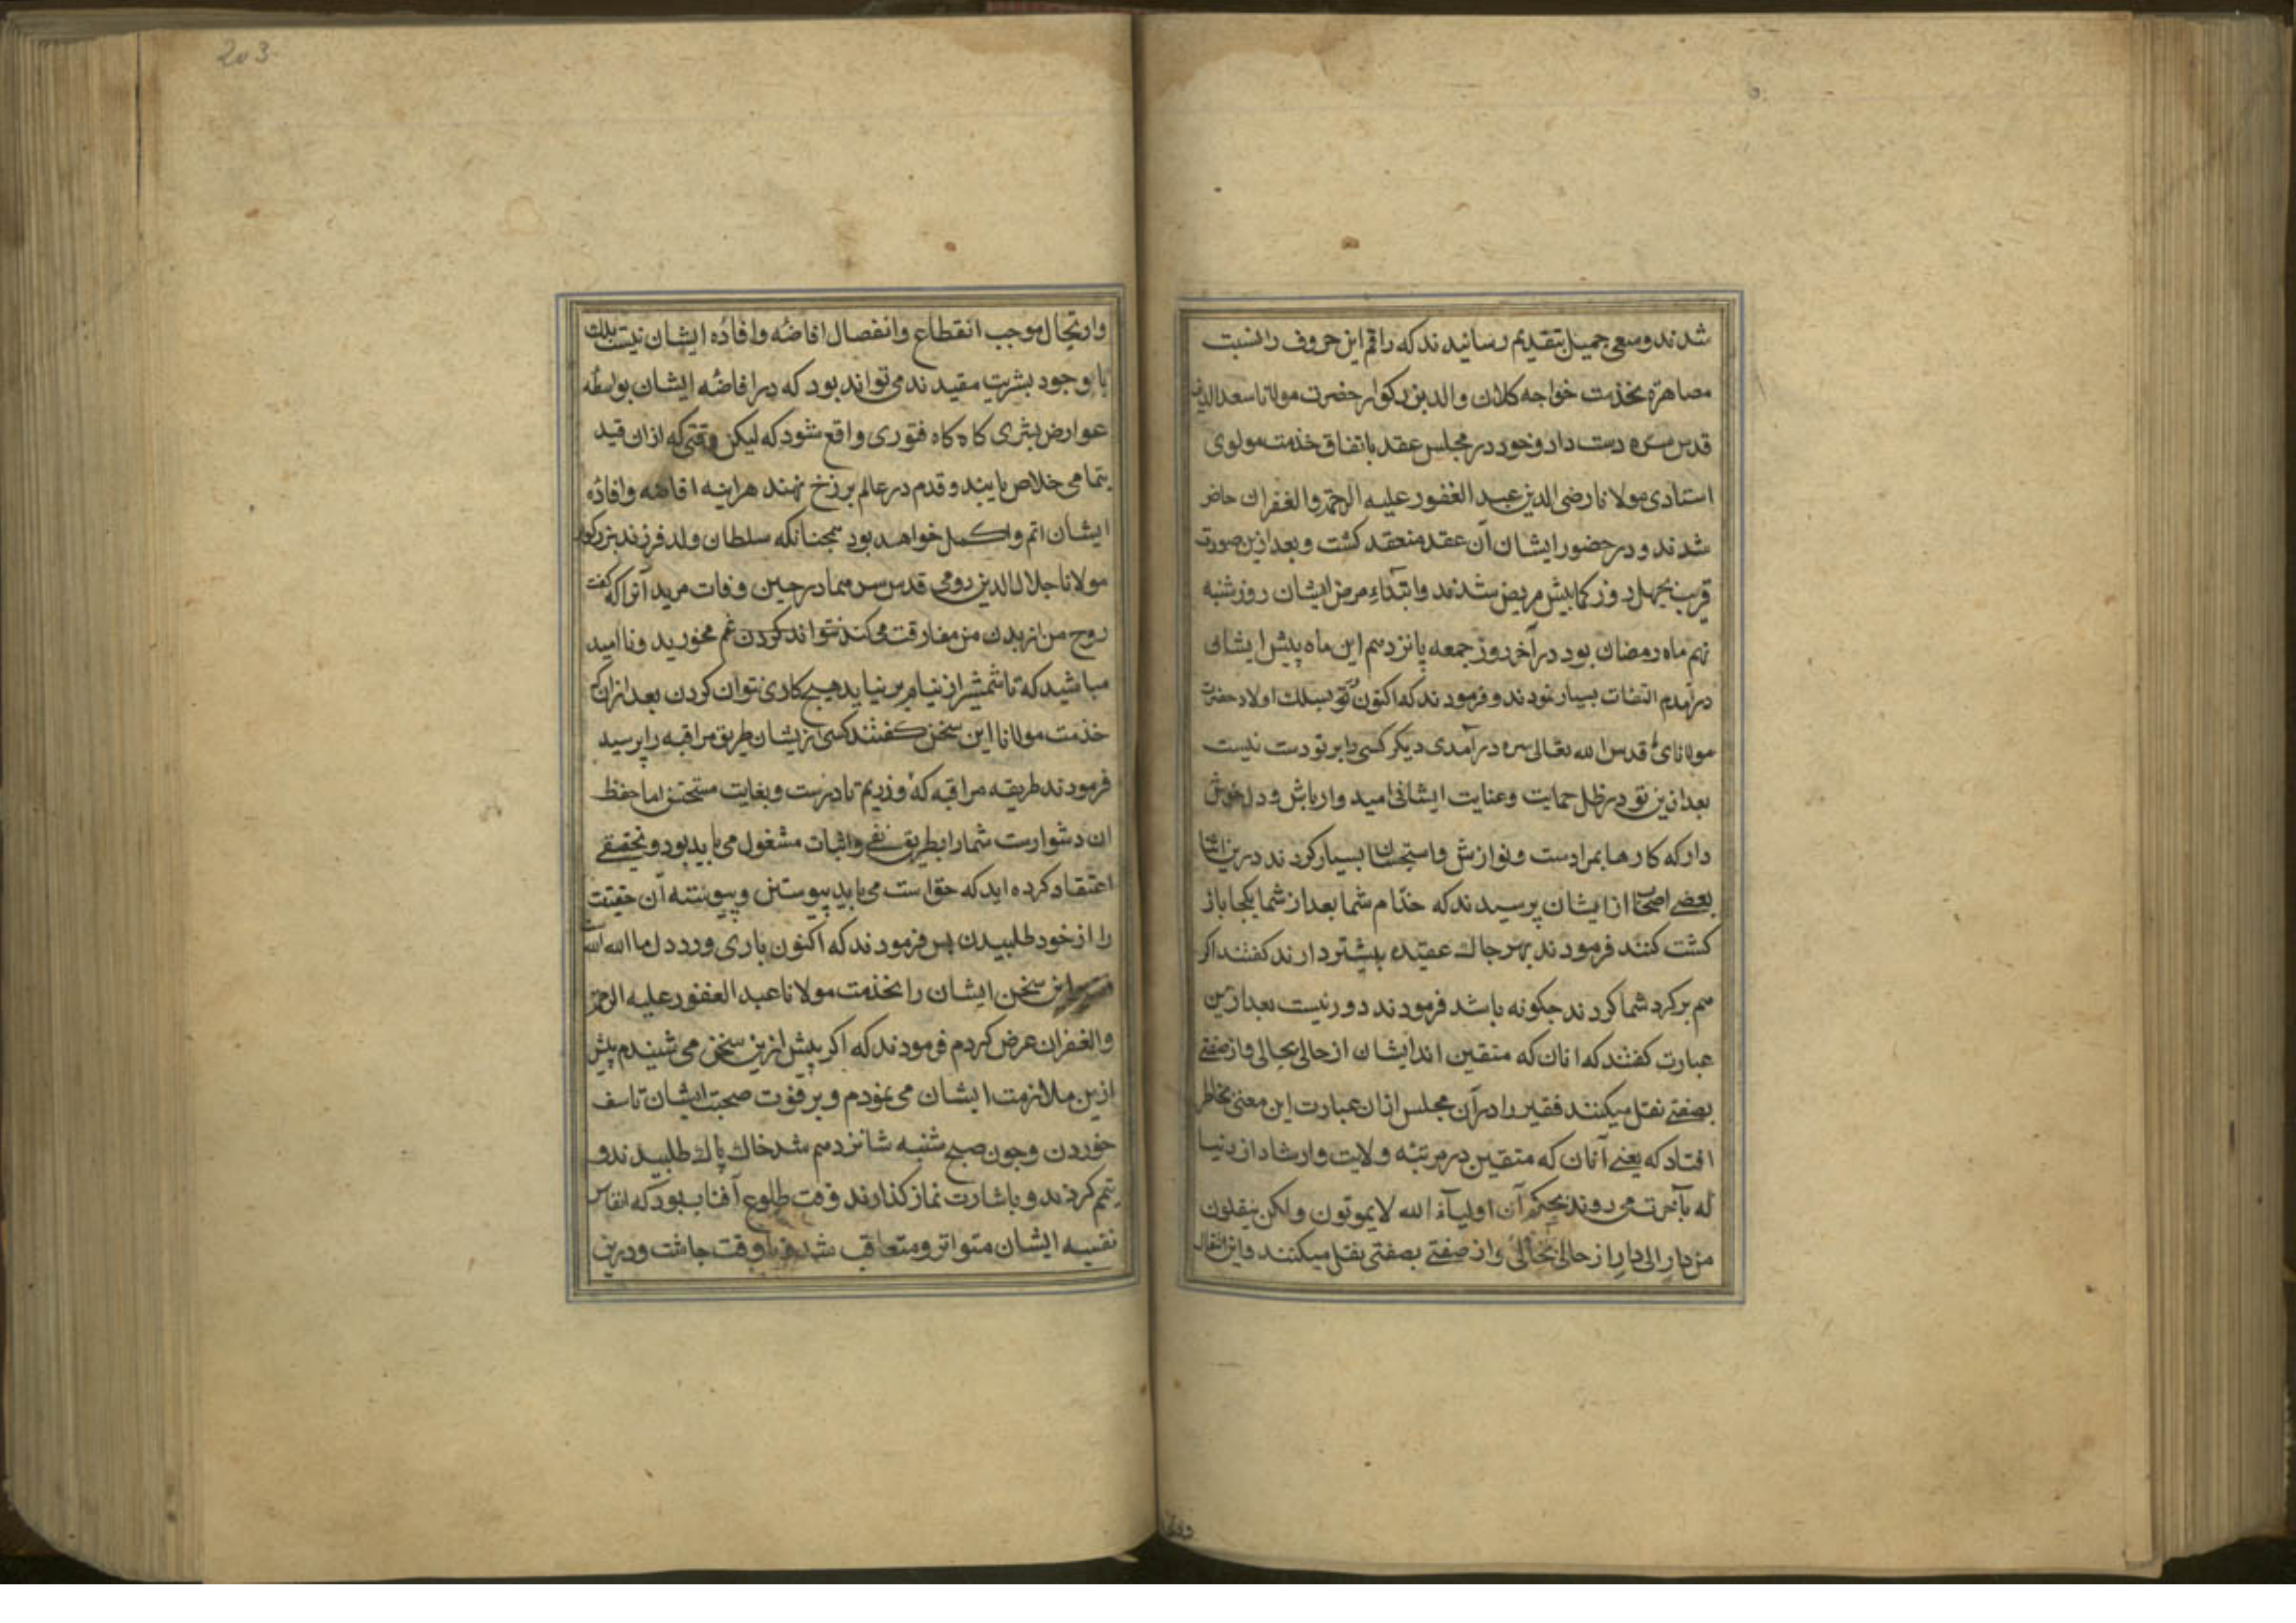 شدند و سعی جمیل بتقدیم رسانیدند که راقم این حروف را نسبت
مصاهرة بخدمت خواجه کلان والد بزرکوار حضرت مولانا سعدالدین
قدس سره دست داد و خود در مجلس عقد باتفاق خدمت مولوی
استادی مولانا رضی الدین عبد الغفور علیه الرحمة والغفران حاضر
شدند و در حضور ایشان آن عقد منعقد کشت و بعد ازین صورت
قریب بچهل روز کمابیش مریض شدند و ابتداء مرض ایشان روز شنبه
نهم ماه رمضان بود در آخر روز جمعه پانزدهم این ماه پیش ایشان
درآمدم التفات بسیار نمودند و فرمودند که اکنون تو بسلک اولاد حضرت
مولانای قدس الله تعالی سره درآمدی دیکر کسی را بر تو دست نیست
بعد ازین تو در ظل حمایت و عنایت ایشانی امیدوار باش و دل خوش
دار که کارها بمرادست و نوازش و استحسان بسیار کردند درین اثنا
بعضی اصحاب از ایشان پرسیدند که خدّام شما بعد از شما بکجا باز
کشت کنند فرمودند بهر جا که عقیده بیشتر دارند کفتند اکر
هم بر کرد شما کردند جکونه باشد فرمودند دور نیست بعد ازین
عبارت کفتند که انان که متقین اند ایشان از حالی بحالی و از صفتی
بصفتی نقل میکنند فقیر را در آن مجلس ازان عبارت این معنی بخاطر
افتاد که یعنی آنان که متقین در مرتبه ولایت و ارشاد از دنیا
که بآخرت می روند بحکم آن اولیآء الله لا یموتون ولکن ینقلون
من دار الی دار از حالی بحالی و از صفتی بصفتی نقل میکنند و این انتقال
203
وارتحال موجب انقطاع وانفصال افاضه وافاده ایشان نیست بلک
با وجود بشریت مقیدند می تواند بود که در افاضه ایشان بواسطه
عوارض بشری کاه کاه فتوری واقع شود که لیکن وقتی که ازان قید
بتمامی خلاص یابند و قدم در عالم برزخ نهند هراینه افاضه وافاده
ایشان اتم واکمل خواهد بود همجنانکه سلطان ولد فرزند بزرکوار
مولانا جلال الدین رومی قدس سرهما در حین وفات مریدانرا که کفت
روح من از بدن من مفارقت می کند نتواند کردن غم مخورید و ناامید
مباشید که تا شمشیر از نیام بر نیاید هیچ کاری نتوان کردن بعد ازان که
خدمت مولانا این سخن کفتند کسی از ایشان طریق مراقبه را پرسید
فرمودند طریقه مراقبه که ورزیم نادرست و بغایت مستحسن اما حفظ
ان دشوارست شما را بطریق نفی واثبات مشغول می باید بود و تحقیقی
اعتقاد کرده اید که حق است می باید پیوستن و پیوسته آن حقیقت
را از خود طلبیدن پس فرمودند که اکنون باری ورد دل ما الله الله است
این سخن ایشان را بخدمت مولانا عبد الغفور علیه الرحمة
والغفران عرض کردم فرمودند که اکر پیش ازین سخن می شنیدم پیش
ازین ملازمت ایشان می نمودم و بر فوت صحبت ایشان تاسف
خوردن و جون صبح شنبه شانزدهم شد خاک پاک طلبیدند و
تیمم کردند و باشارت نماز کذاردند وقت طلوع آفتاب بود که انفاس
نفیسه ایشان متواتر و متعاقب شد و تا وقت جاشت و درین